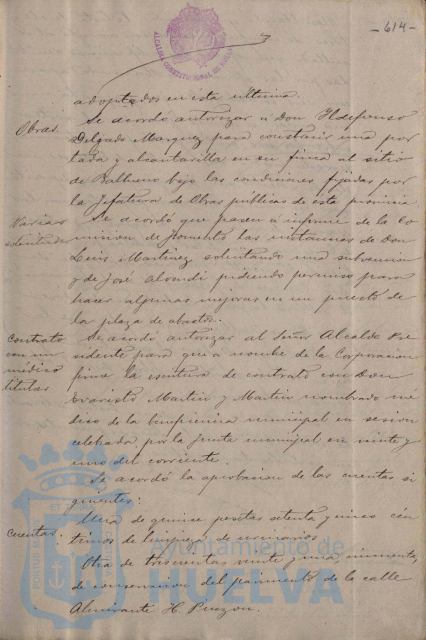 -614-
ALCALDIA CONSTITUCIONAL DE HUELVA
adoptados en esta ultima.
Obras. Se acordó autorizar a don Ildefonso
Delgado Marquez para construir una por
tada y alcantarilla en su finca al sitio
de Balbueno bajo las condiciones fijadas por
la Jefatura de Obras públicas de esta provincia
Varias solicitudes Se acordó que pasen a informe de la Co
mision de fomento las instancias de Don
Luis Martinez solicitando una subvencion
y de José pidiendo permiso para
hacer algunas mejoras en un puesto de
la plaza de abastos.
Contrato con un médico titular Se acordó autorizar al Señor Alcalde Pre
sidente para que a nombre de la Corporacion
firme la escritura de contrato con Don
Evaristo Martin y Martin nombrado mé
dico de la beneficencia municipal en sesion
celebrada por la junta municipal en veinte y
uno del corriente.
Se acordó la aprobacion de las cuentas si
guientes:
Cuentas. Una de quince pesetas setenta y cinco cen
timos de limpieza de urinarios
Otra de trescientas veinte y cinco, cincuenta,
de conservacion del pavimento de la calle
Almirante H. Pinzon.
Ayuntamiento de
HUELVA